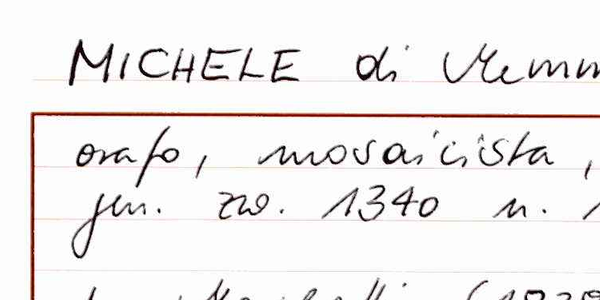 MICHELE di Memm
orafo, mosaicista,
gen. zw. 1340 u. 1